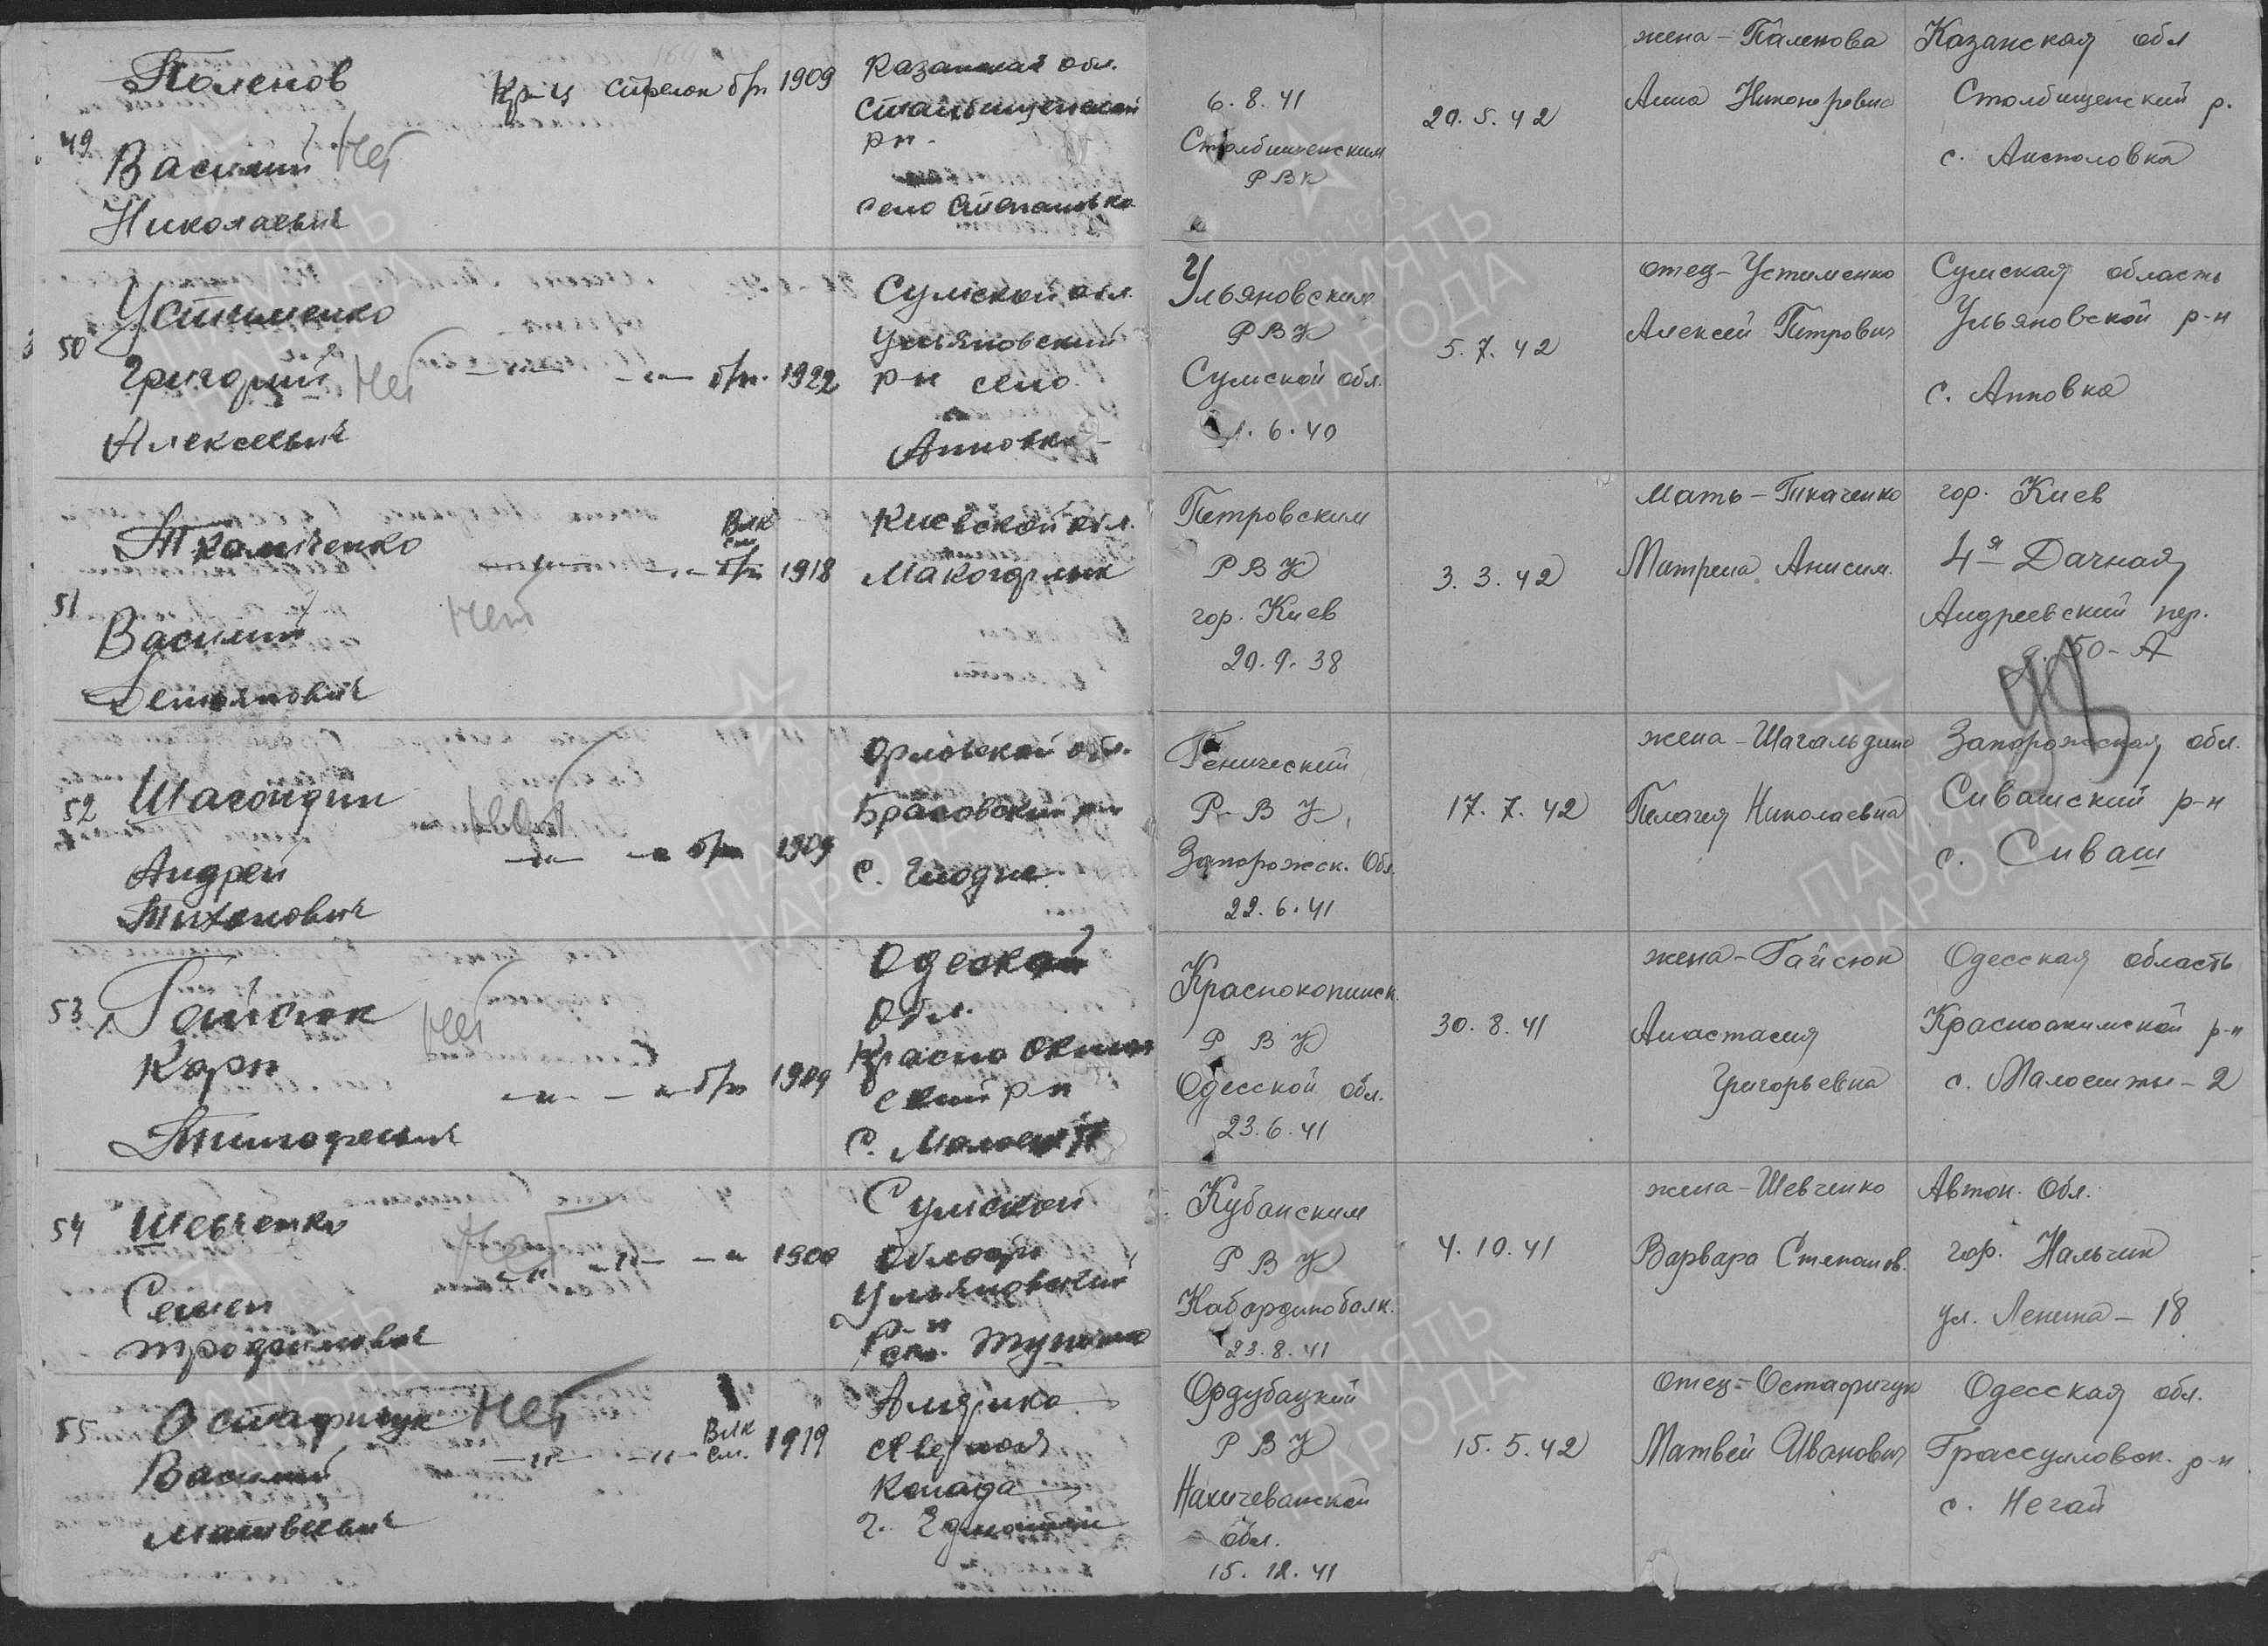 49
Поленов
Василий
Николаевич
Нет
Кр-ц стрелок б/п 1909
Казанская обл.
р-н.
село
6.8.41
Столбищенским
РВК
20.5.42
жена - Паленова
Анна
Казанская обл
Столбищенский р.
с.
50
Устименко
Григорий
Алексеевич
Нет
-"- -"- б/п. 1922
Сумской обл.
Ульяновский
р-н село
Анновка
Ульяновским
РВК
Сумской обл.
6.40
5.7.42
отец - Устименко
Алексей Петрович
Сумская область
Ульяновской р-н
с. Анновка
51
Ткатченко
Василий
Демьянович
Нет
-"- -"- б/п 1918
Киевской обл.
Петровским
РВК
гор. Киев
20.9.38
3.3.42
Мать - Ткаченко
Матрена Анисим.
гор. Киев
4-я Дачная
Андреевский пер.
д. 50-А
52
Шагондин
Андрей
Тихонович
-"- -"- б/п 1909
Орловской обл.
Брасовский р-н
с.
Генический
Р-ВК
Запорожск. Обл.
22.6.41
17.7.42
жена - Шагальдина
Пелагея Николаевна
Запорожская обл.
Сивашский р-н
с. Сиваш
53
Гайсюк
Карп
Тимофеевич
Нет
-"- -"- б/п 1909
Одеской
обл.
Красно Окнян
ский р-н
с.
Краснокопинск.
РВК
Одесской обл.
23.6.41
30.8.41
жена - Гайсюк
Анастасия
Григорьевна
Одесская область
р-н
с. - 2
54
Шевченко
Семен
Трофимович
Нет
-"- -"- -" 1900
Сумской
области
Ульяновский
р-н
Кубанским
РВК
Кабардинобалк.
23.8.41
4.10.41
жена - Шевченко
Варвара Степанов.
Автон. Обл.
гор. Нальчик
ул. Ленина - 18
55
Остафичук
Василий
Матвеевич
Нет
-"- -"- 1919
Америка
северная
Канада
г.
Ордубацкий
РВК
Нахичеванской
обл.
15.12.41
15.5.42
отец - Остафичук
Матвей Иванович
Одесская обл.
Грассуловск. р-н
с. Негай
ПАМЯТЬ
НАРОДА